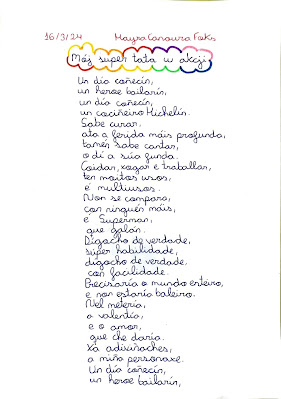 16/3/24 Mayra Canoura Faks
Mój super tata w akcji
Un día coñecín,
un heroe bailarín,
un día coñecín,
un cociñeiro Michelín.
Sabe curar,
ata a ferida máis profunda,
tamén sabe cantar,
o dí a súa funda.
Coidar, xogar e traballar,
ten moitos usos,
é multiusos.
Non se compara,
con ninguén máis,
é Superman,
que galán.
Dígocho de verdade,
súper habilidade,
dígocho de verdade,
con facilidade.
Precisaría o mundo enteiro,
e non estaría baleiro.
Nel metería,
a valentía,
e o amor,
que che daría.
Xa adiviñaches,
a miña personaxe.
Un día coñecín,
un heroe bailarín,